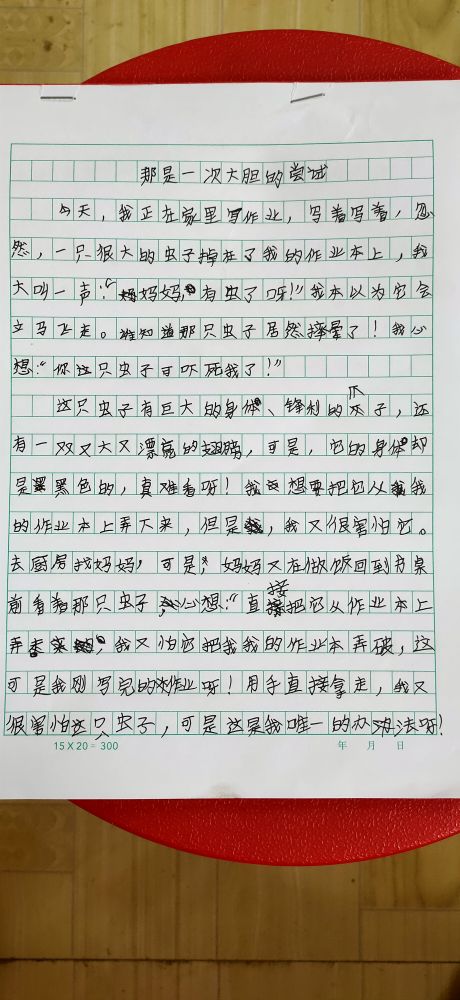 那是一次大胆的尝试
今天，我正在家里写作业，写着写着，忽
然，一只很大的虫子掉在了我的作业本上，我
大叫一声：“妈妈，有虫了呀！”我本以为它会
立马飞走。谁知道那只虫子居然摔晕了！我心
想：“你这只虫子可吓死我了！”
这只虫子有巨大的身体、锋利的爪子，还
有一双又大又漂亮的翅膀，可是，它的身体却
是黑色的，真难看呀！我想要把它从我
的作业本上弄下来，但是，我又很害怕它。
去厨房找妈妈，可是，妈妈又在做饭回到书桌
前看着那只虫子，心想：“直接把它从作业本上
弄，我又怕它把我我的作业本弄破，这
可是我刚写完的作业呀！用手直接拿走，我又
很害怕这只虫子，可是这是我唯一的办法呀！
15×20=300 年 月 日